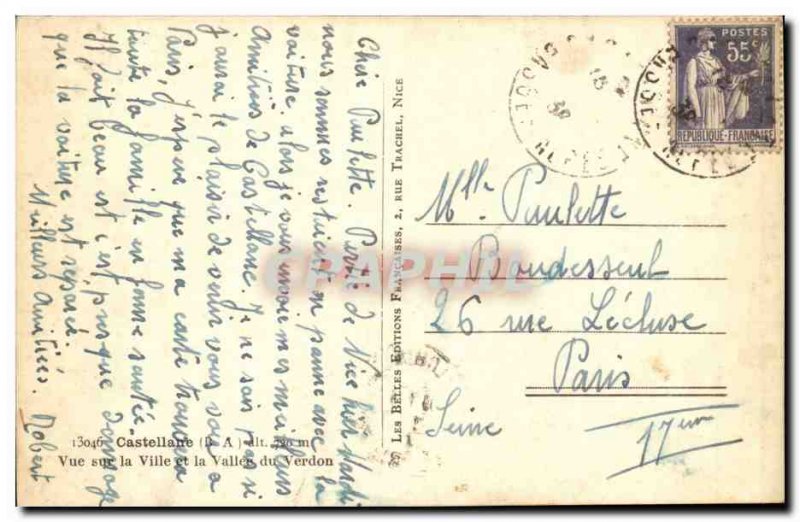 Chère Paulette. Partis de Nice hier Mardi
nous sommes restaient en panne avec la
voiture. alors je vous envoie mes meilleurs
Amitiés de Castellane. Je ne sais pas si
j'aurai le plaisir de venir vous voir a
Paris, J'espère que ma carte trouvera
toute la famille en bonne santée.
Il fait beau est c'est presque domage
que la voiture est reparée.
Meilleurs Amitiés. Robert
13046 Castellane (B. A) alt. 720 m
Vue sur la Ville et la Vallée du Verdon
LES BELLES EDITIONS FRANÇAISES, 2, RUE TRACHEL, NICE
POSTES
55c
REPUBLIQUE-FRANÇAISE
38
Mlle Paulette
Boudesseul
26 rue Lécluse
Paris
Seine
17ème
CPAPHIL